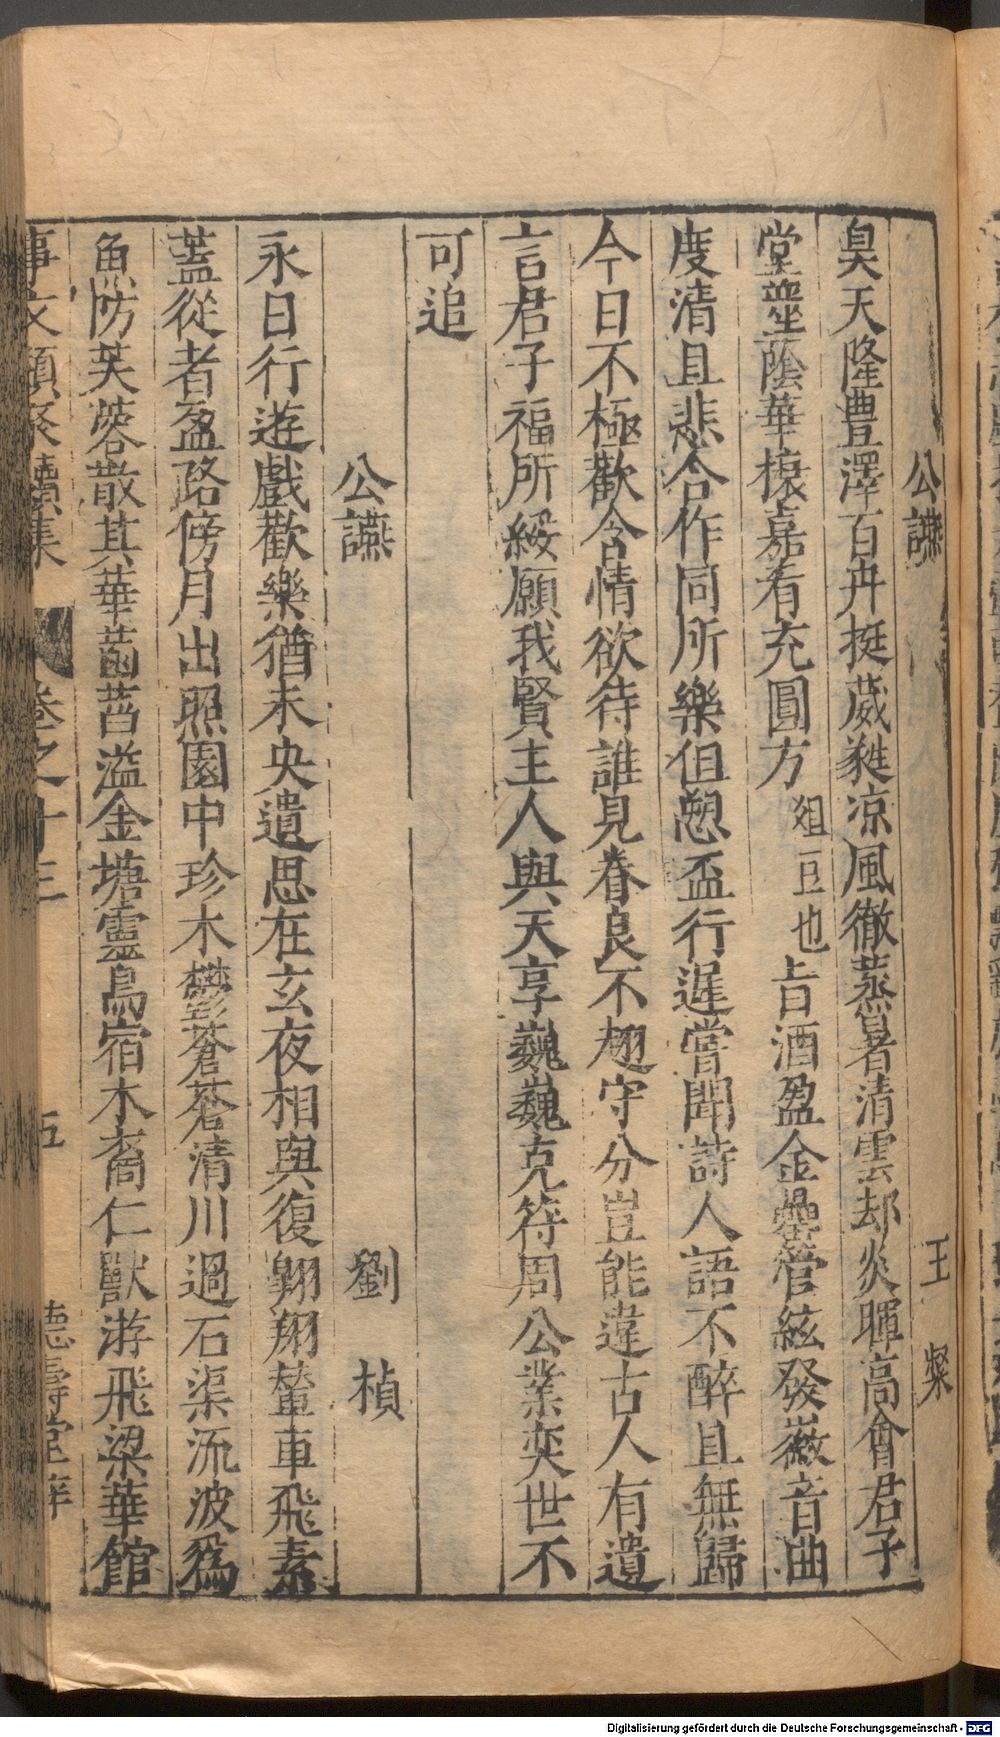 公讌 王粲
昊天隆豊澤百卉挺葳蕤凉風徹蒸暑清雲却炎暉高會君子
堂並坐蔭華榱嘉肴充圓方俎豆也旨酒盈金罍管絃發徽音曲
度清且悲合作同所樂但愬盃行遲嘗聞詩人語不醉且無歸
今日不極歡含情欲待誰見眷良不翅守分豈能違古人有遺
言君子福所綏願我賢主人與天享巍巍克符周公業奕世不
可追
公讌 劉楨
永日行遊戲歡樂猶未央遺思在玄夜相與復翱翔輦車飛素
蓋從者盈路傍月出照園中珍木鬱蒼蒼清川過石渠流波爲
魚防芙蓉散其華菡萏溢金塘靈鳥宿木裔仁獸游飛梁華館
事文類聚續集 卷之十三 五 德壽堂梓
Digitalisierung gefördert durch die Deutsche Forschungsgemeinschaft - DFG